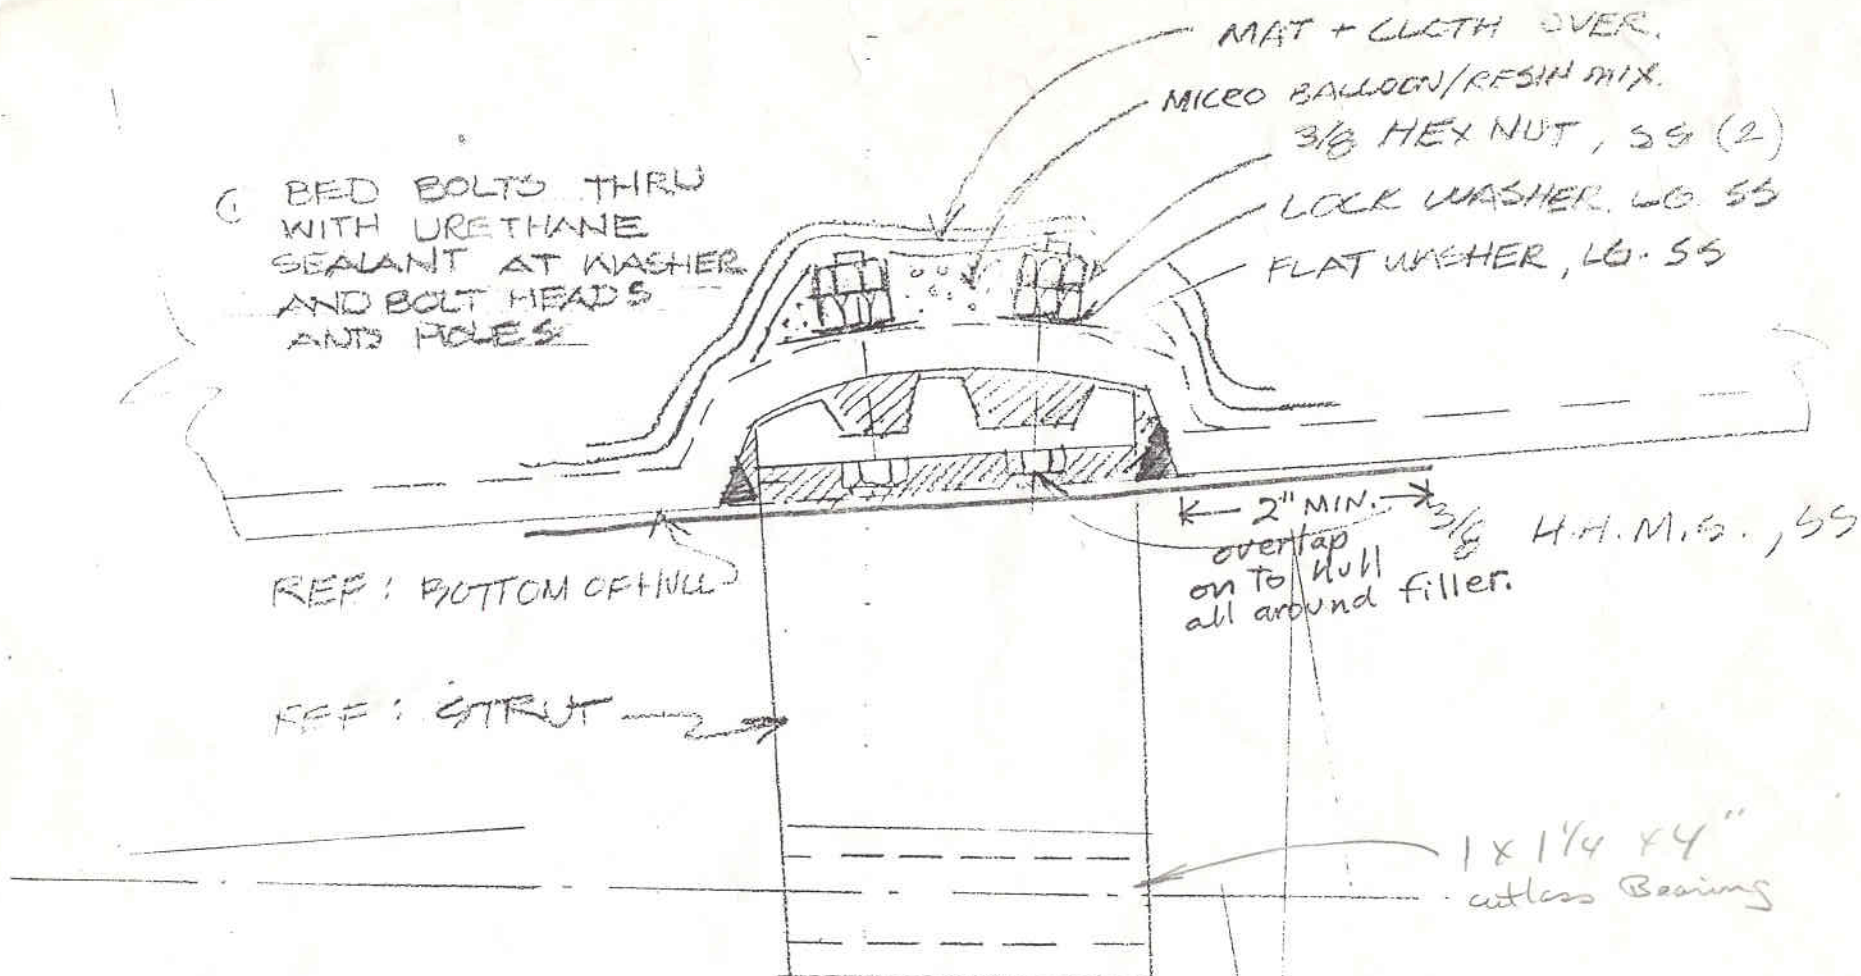 MAT + CLOTH OVER.
MICRO BALLOON/RESIN MIX.
3/8 HEX NUT, SS (2)
LOCK WASHER. LG. SS
FLAT WASHER, LG. SS
BED BOLTS THRU
WITH URETHANE
SEALANT AT WASHER
AND BOLT HEADS
AND HOLES
2" MIN.
overlap
on to hull
all around filler.
3/8 H.H.M.S., SS
REF: BOTTOM OF HULL
REF: STRUT
1 x 1 1/4 x 4"
cutlass Bearing